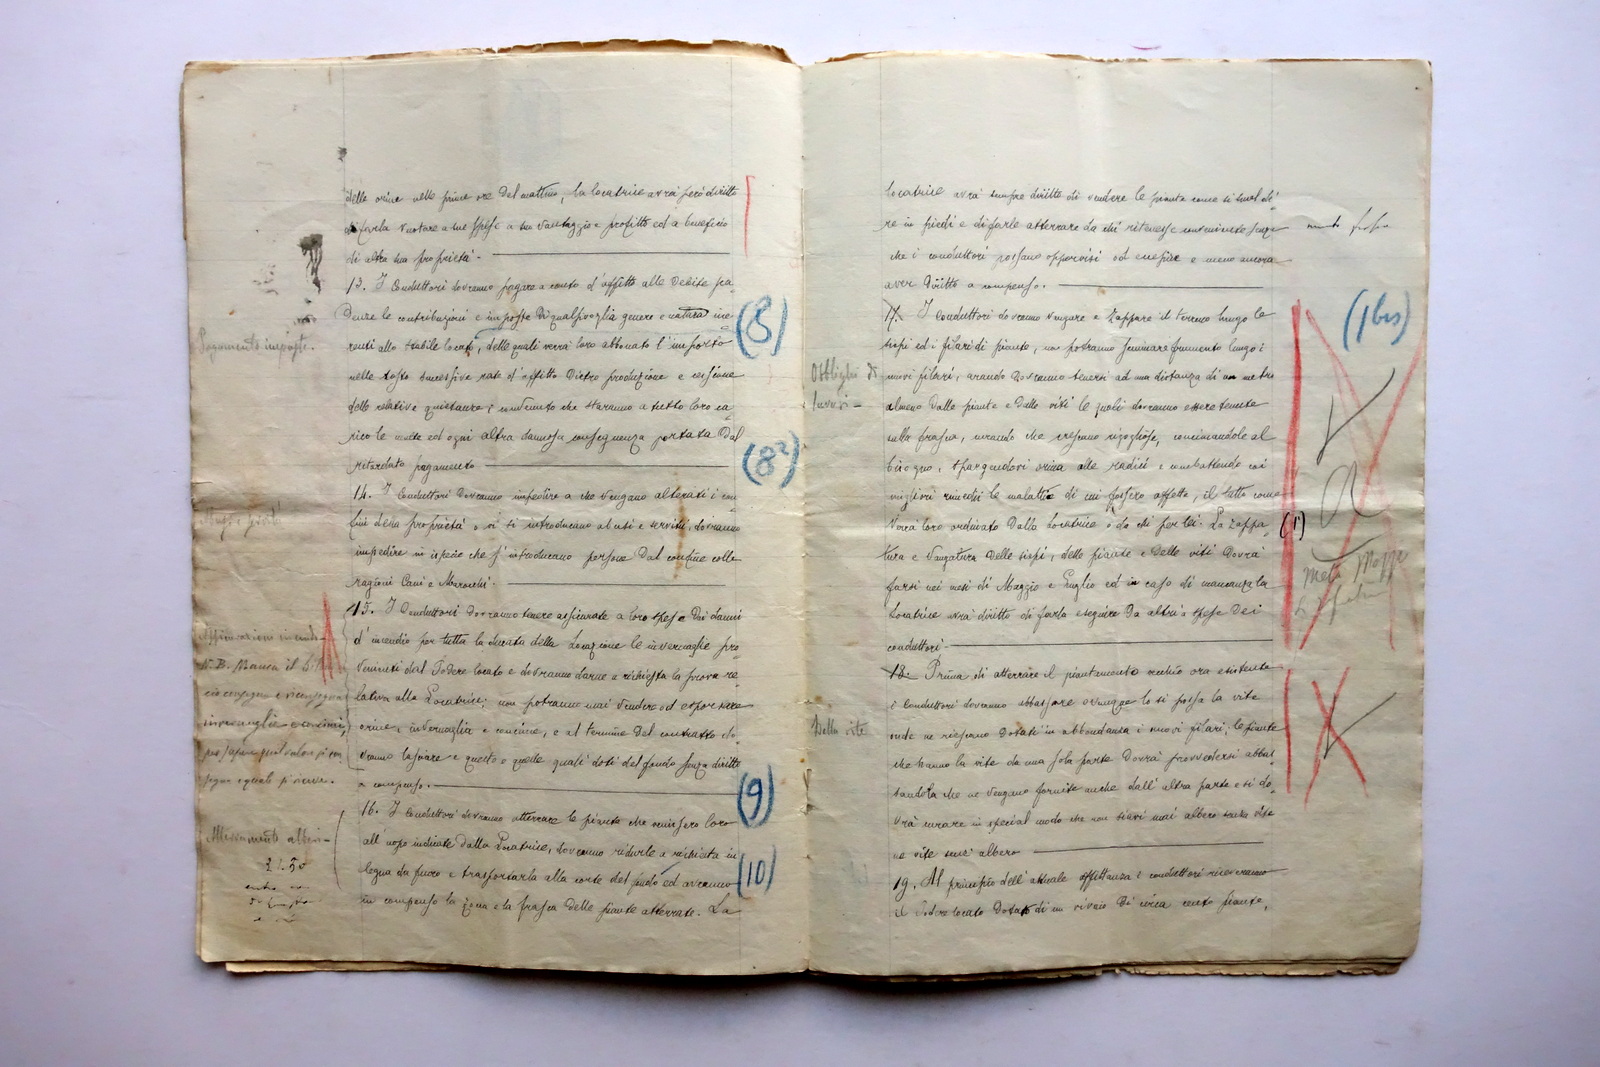 delle orine nelle prime ore del mattino, la locatrice avrà però diritto
di farla vuotare a sue spese a suo vantaggio e profitto ed a beneficio
di altra sua proprietà.
13. I Conduttori dovranno pagare a conto d'affitto alle debite sca-
denze le contribuzioni e imposte di qualsivoglia genere e natura ine-
renti allo stabile locato, delle quali verrà loro abbonato l'importo
nelle tosto successive rate d'affitto dietro produzione e cessione
delle relative quietanze; convenuto che staranno a tutto loro ca-
rico le multe ed ogni altra dannosa conseguenza portata dal
ritardato pagamento
14. I Conduttori dovranno impedire a che vengano alterati i con
fini della proprietà, o vi si introducano abusi e servitù, dovranno
impedire in ispecie che s'introducano persone dal confine colle
ragioni Cani e
15. I Conduttori dovranno tenere assicurate a loro spese dai danni
d'incendio per tutta la durata della Locazione le invernaglie pro
venienti dal Podere locato e dovranno darne a richiesta la prova re-
lativa alla Locatrice; non potranno mai vendere od esportare
orine, invernaglia e concime, e al termine del contratto do-
vranno lasciare e questo e quelle quali doti del fondo senza diritto
a compenso.
16. I Conduttori dovranno atterrare le piante che venissero loro
all'uopo indicate dalla Locatrice, dovranno ridurle a richiesta in
legna da fuoco e trasportarla alla corte del fondo ed avranno
in compenso la zona e la frasca delle piante atterrate. La
Pagamento imposte.
N. B. Manca il
invernaglie e concimi,
21.50
(8)
(8²)
(9)
(10)
locatrice avrà sempre diritto di vendere le piante come si suol di-
re in piedi e di farle atterrare da chi ritenesse conveniente senza
che i conduttori possano opporvisi od eccepire e meno ancora
aver diritto a compenso.
17. I Conduttori dovranno vangare e zappare il terreno lungo le
siepi ed i filari di piante, non potranno seminare frumento lungo i
nuovi filari, arando dovranno tenersi ad una distanza di un metro
almeno dalle piante e dalle viti le quali dovranno essere tenute
sulla frasca, curando che crescano rigogliose, concimandole al
bisogno, spargendovi orina alle radici e combattendo coi
migliori rimedi le malattie di cui fossero affette, il tutto come
verrà loro ordinato dalla Locatrice o da chi per lei. La zappa-
tura e vangatura delle siepi, delle piante e delle viti dovrà
farsi nei mesi di Maggio e Luglio ed in caso di mancanza la
Locatrice avrà diritto di farla eseguire da altri a spese dei
conduttori.
18. Prima di atterrare il piantamento vecchio ora esistente
i Conduttori dovranno abbassare ovunque lo si possa la vite
onde ne riescano dotati in abbondanza i nuovi filari; le piante
che hanno la vite da una sola parte dovrà provvedersi abbas-
sandola che ne vengano fornite anche dall'altra parte e si do-
vrà curare in special modo che non siavi mai albero senza vite
ne vite senz'albero
19. Al principio dell'attuale affittanza i conduttori riceveranno
il Podere locato dotato di un vivaio di circa cento piante,
Obblighi di
lavori -
Della vite
(1 bis)
(1)